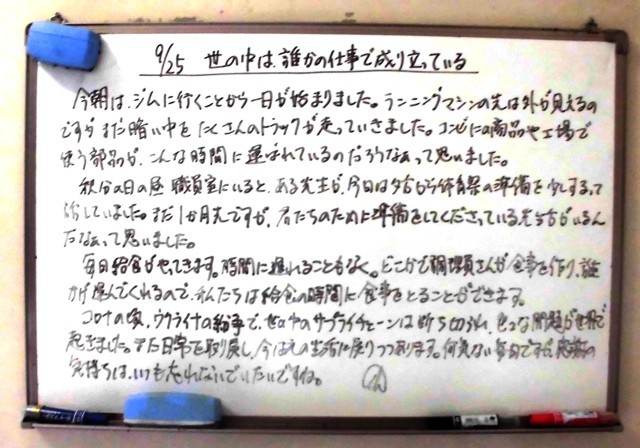 9/25 世の中は、誰かの仕事で成り立っている
今朝は、ジムに行くことから一日が始まりました。ランニングマシンの先は外が見えるの
ですが まだ暗い中を たくさんのトラックが走っていきました。コンビニの商品や工場で
使う部品が、こんな時間に運ばれているのだろうなぁって思いました。
秋分の日の昼 職員室にいると、ある先生が、今日は夕方から体育祭の準備を少しするって
話していました。まだ1か月先ですが、君たちのために準備をしてくださっている先生方がいるん
だなぁって思いました。
毎日給食がやってきます。時間に遅れることもなく。どこかで調理員さんが食事を作り、誰
かが運んでくれるので、私たちは給食の時間に食事をとることができます。
コロナの頃、ウクライナの紛争で、世の中のサプライチェーンは断ち切られ、色々な問題が世界で
起きました。また日常を取り戻し、今はもとの生活に戻りつつあります。何気ない毎日ですが、感謝の
気持ちは、いつも忘れないでいたいですね。